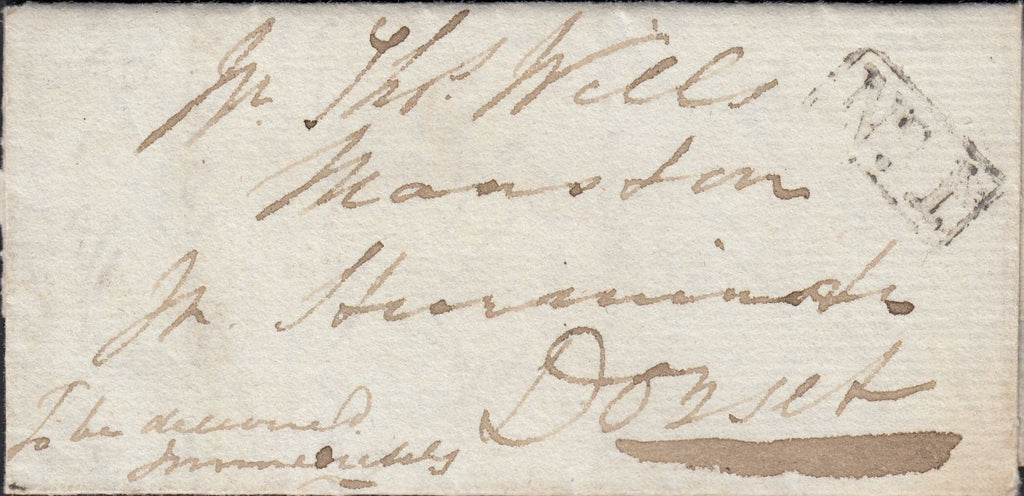 Mr. Thos. Wills
Manston
Nr. Sturminster
Dorset
To be delivered
Immediately
No. 1